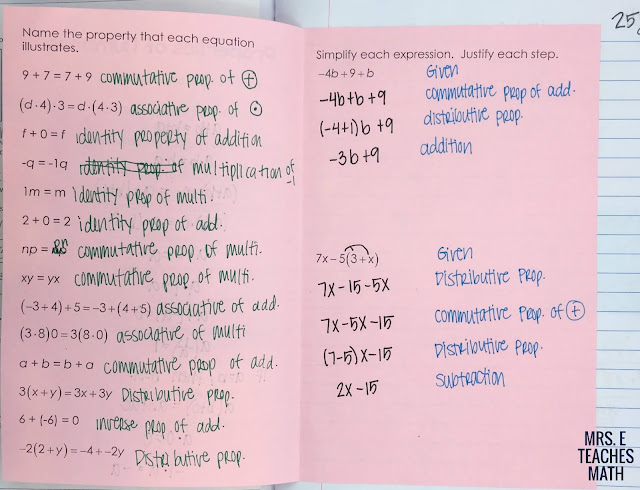 Name the property that each equation
illustrates.
9 + 7 = 7 + 9 commutative prop. of ⊕
(d · 4) · 3 = d · (4 · 3) associative prop. of ⊙
f + 0 = f identity property of addition
-q = -1q identity prop. of multiplication of -1
1m = m identity prop of multi.
2 + 0 = 2 identity prop of add.
np = pn commutative prop. of multi.
xy = yx commutative prop. of multi.
(−3 + 4) + 5 = −3 + (4 + 5) associative of add.
(3 · 8)0 = 3(8 · 0) associative of multi
a + b = b + a commutative prop of add.
3(x + y) = 3x + 3y Distributive prop.
6 + (-6) = 0 inverse prop of add.
−2(2 + y) = −4 + −2y Distributive prop.
25
Simplify each expression. Justify each step.
−4b + 9 + b Given
-4b+b+9 commutative prop of add.
(-4+1)b +9 distributive prop.
-3b+9 addition
7x − 5(3 + x) Given
7x -15 -5x Distributive Prop.
7x -5x -15 commutative Prop. of ⊕
(7-5)x -15 Distributive Prop.
2x -15 subtraction
MRS. E
TEACHES
MATH